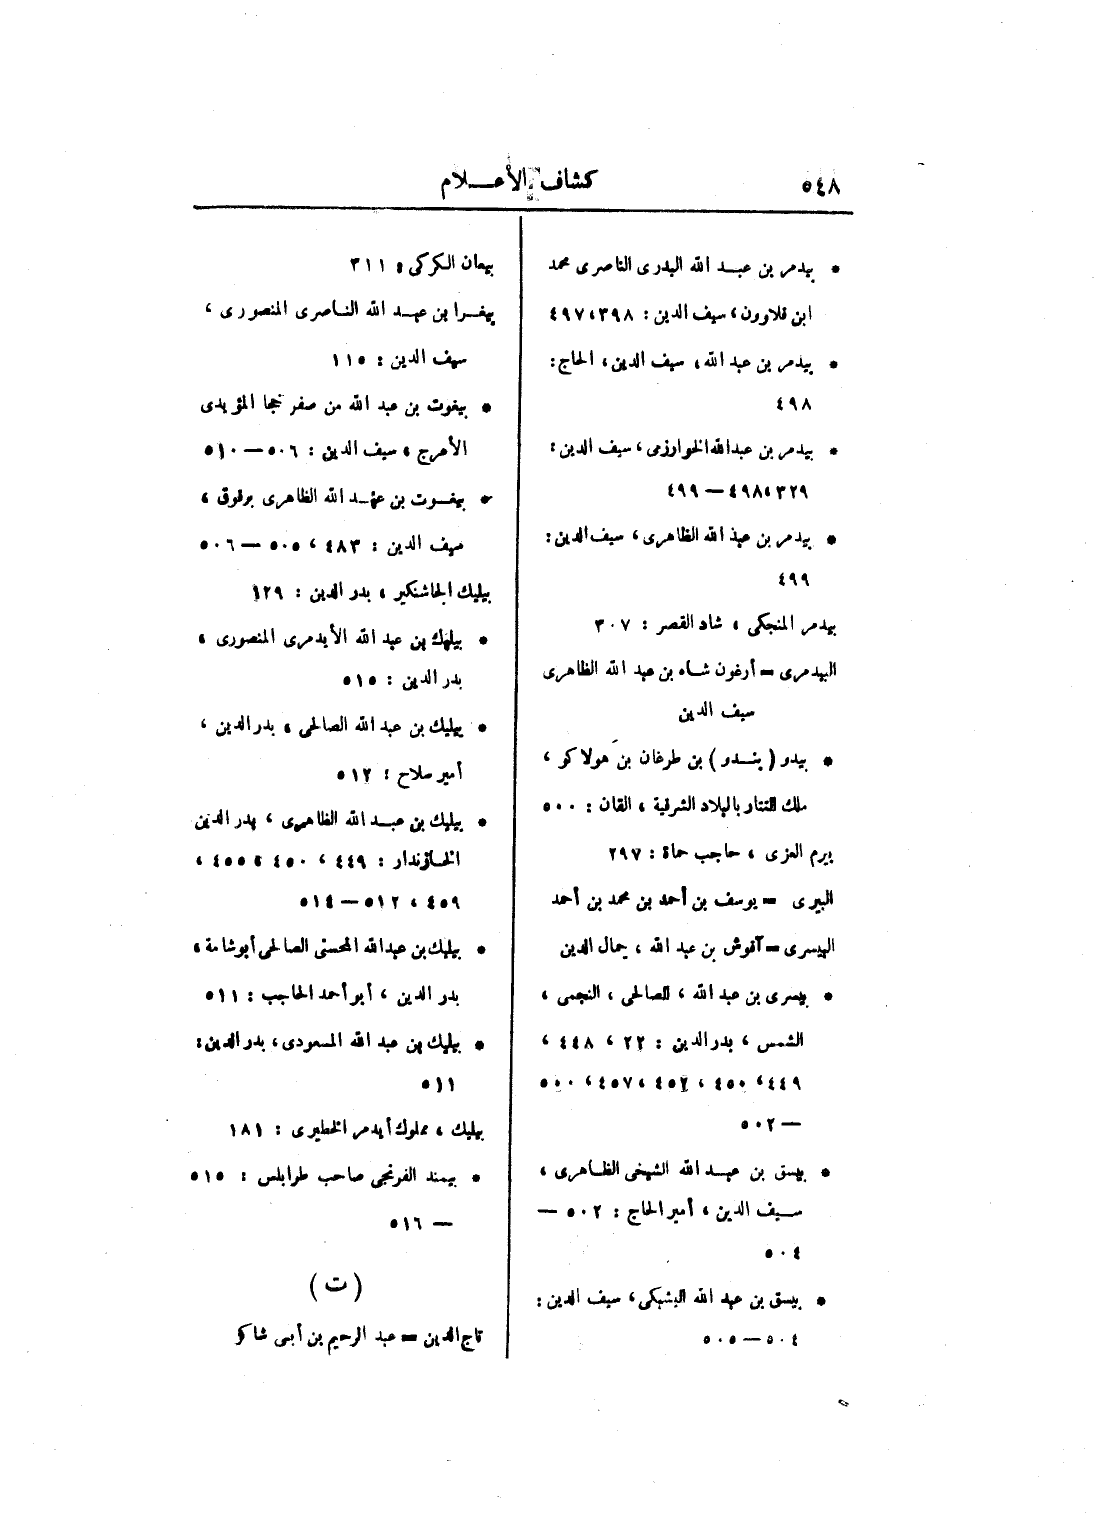 ٥٤٨
كشاف الأعلام
* بيدمر بن عبد الله البدرى الناصرى محمد
ابن قلاوون، سيف الدين: ٣٩٨، ٤٩٧
* بيدمر بن عبد الله، سيف الدين، الحاج:
٤٩٨
* بيدمر بن عبد الله الخوارزمى، سيف الدين:
٣٢٩، ٤٩٨ – ٤٩٩
* بيدمر بن عبد الله الظاهرى، سيف الدين:
٤٩٩
بيدمر المنجكى، شاد القصر: ٣٠٧
البيدمرى = أرغون شاه بن عبد الله الظاهرى
سيف الدين
* بيدو (بندو) بن طرغان بن هولاكو،
ملك التتار بالبلاد الشرقية، القان: ٥٠٠
بيرم العزى، حاجب حماة: ٢٩٧
البيرى = يوسف بن أحمد بن محمد بن أحمد
البيسرى = آقوش بن عبد الله، جمال الدين
* بيسرى بن عبد الله، الصالحى، النجمى،
الشمس، بدر الدين: ٢٢، ٤٤٨،
٤٤٩، ٤٥٠، ٤٥٢، ٤٥٧، ٥٠٠
– ٥٠٢
* بيسق بن عبد الله الشيخى الظاهرى،
سيف الدين، أمير الحاج: ٥٠٢ –
٥٠٤
* بيسق بن عبد الله اليشبكى، سيف الدين:
٥٠٤ – ٥٠٥
بيعان الكركى: ٣١١
بيغرا بن عبد الله الناصرى المنصورى،
سيف الدين: ١١٥
* بيغوت بن عبد الله من صفر خجا المؤيدى
الأعرج، سيف الدين: ٥٠٦ – ٥١٠
* بيغوت بن عبد الله الظاهرى برقوق،
سيف الدين: ٤٨٣، ٥٠٥ – ٥٠٦
بيليك الجاشنكير، بدر الدين: ١٢٩
* بيليك بن عبد الله الأيدمرى المنصورى،
بدر الدين: ٥١٥
* بيليك بن عبد الله الصالحى، بدر الدين،
أمير سلاح: ٥١٢
* بيليك بن عبد الله الظاهرى، بدر الدين
الخازندار: ٤٤٩، ٤٥٠، ٤٥٥،
٤٥٩، ٥١٢ – ٥١٤
* بيليك بن عبد الله المحسنى الصالحى أبو شامة،
بدر الدين، أبو أحمد الحاجب: ٥١١
* بيليك بن عبد الله المسعودى، بدر الدين:
٥١١
بيليك، مملوك أيدمر الخطيرى: ١٨١
* بيمند الفرنجى صاحب طرابلس: ٥١٥
– ٥١٦
(ت)
تاج الدين = عبد الرحيم بن أبى شاكر